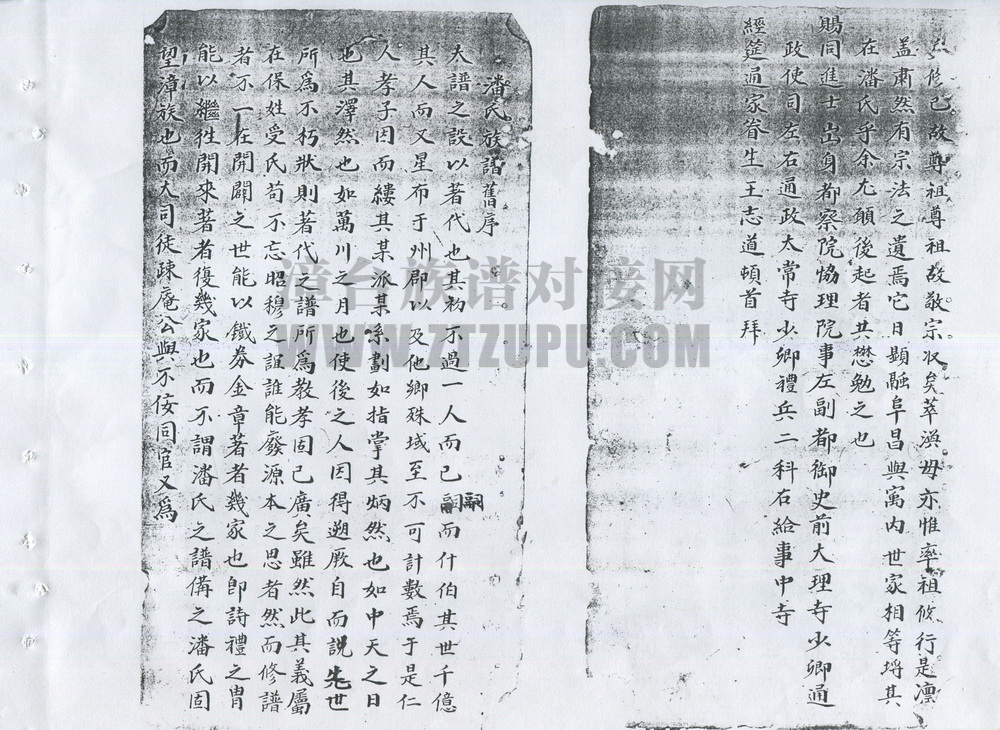 修已故尊祖尊祖故敬宗收矣萃渙毋亦惟率祖攸行是凜
盖肅然有宗法之遺焉它日顯融阜昌與寓内世家相等埒其
在潘氏乎余尤願後起者其懋勉之也
賜同進士出身都察院恊理院事左副都御史前大理寺少卿通
政使司左右通政太常寺少卿禮兵二科右給事中寺
經筵通家眷生王志道頓首拜
潘氏族譜舊序
夫譜之設以著代也其初不過一人而已嗣而什伯其世千億
其人而又星布于州郡以及他鄉殊域至不可計數焉于是仁
人孝子因而縷其某派某系劃如指掌其炳然也如中天之日
也其澤然也如萬川之月也使後之人因得遡厥自而説先世
所爲不朽狀則著代之譜所爲教孝固已廣矣雖然此其義屬
在保姓受氏苟不忘昭穆之誼誰能廢源本之思者然而修譜
者不一在開闢之世能以鐵券金章著者幾家也即詩禮之胄
能以繼徃開來著者復幾家也而不謂潘氏之譜偹之潘氏固
望漳族也而大司徒疎庵公與不佞同官又爲
嗣
漳台族谱对接网
WWW.ZTZUPU.COM